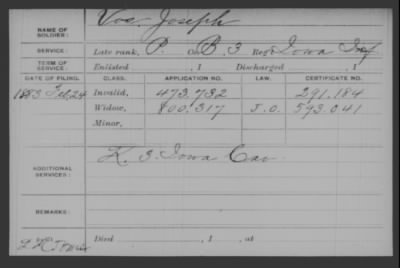 NAME OF SOLDIER: Vos, Joseph
SERVICE: Late rank, P. Co. B. 3 Reg't Iowa Inf
TERM OF SERVICE: Enlisted , 1 Discharged , 1
DATE OF FILING. CLASS. APPLICATION NO. LAW. CERTIFICATE NO.
1883 Feb. 24 Invalid, 473.732 291.184
Widow, 800.317 J.O. 593.041
Minor,
ADDITIONAL SERVICES: K. 3. Iowa Cav
REMARKS:
Died , 1 , at